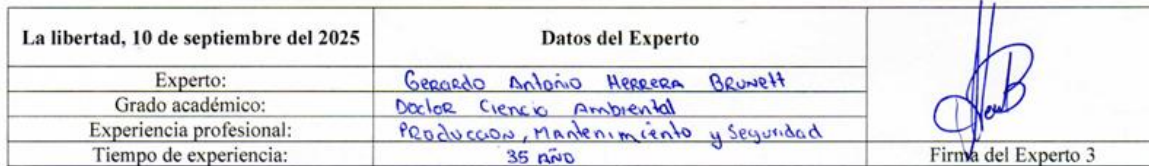 La libertad, 10 de septiembre del 2025 Datos del Experto
Experto: Gerardo Antonio Herrera Brunett
Grado académico: Doctor Ciencia Ambiental
Experiencia profesional: Producción, Mantenimiento y Seguridad
Tiempo de experiencia: 35 AÑO
Firma del Experto 3